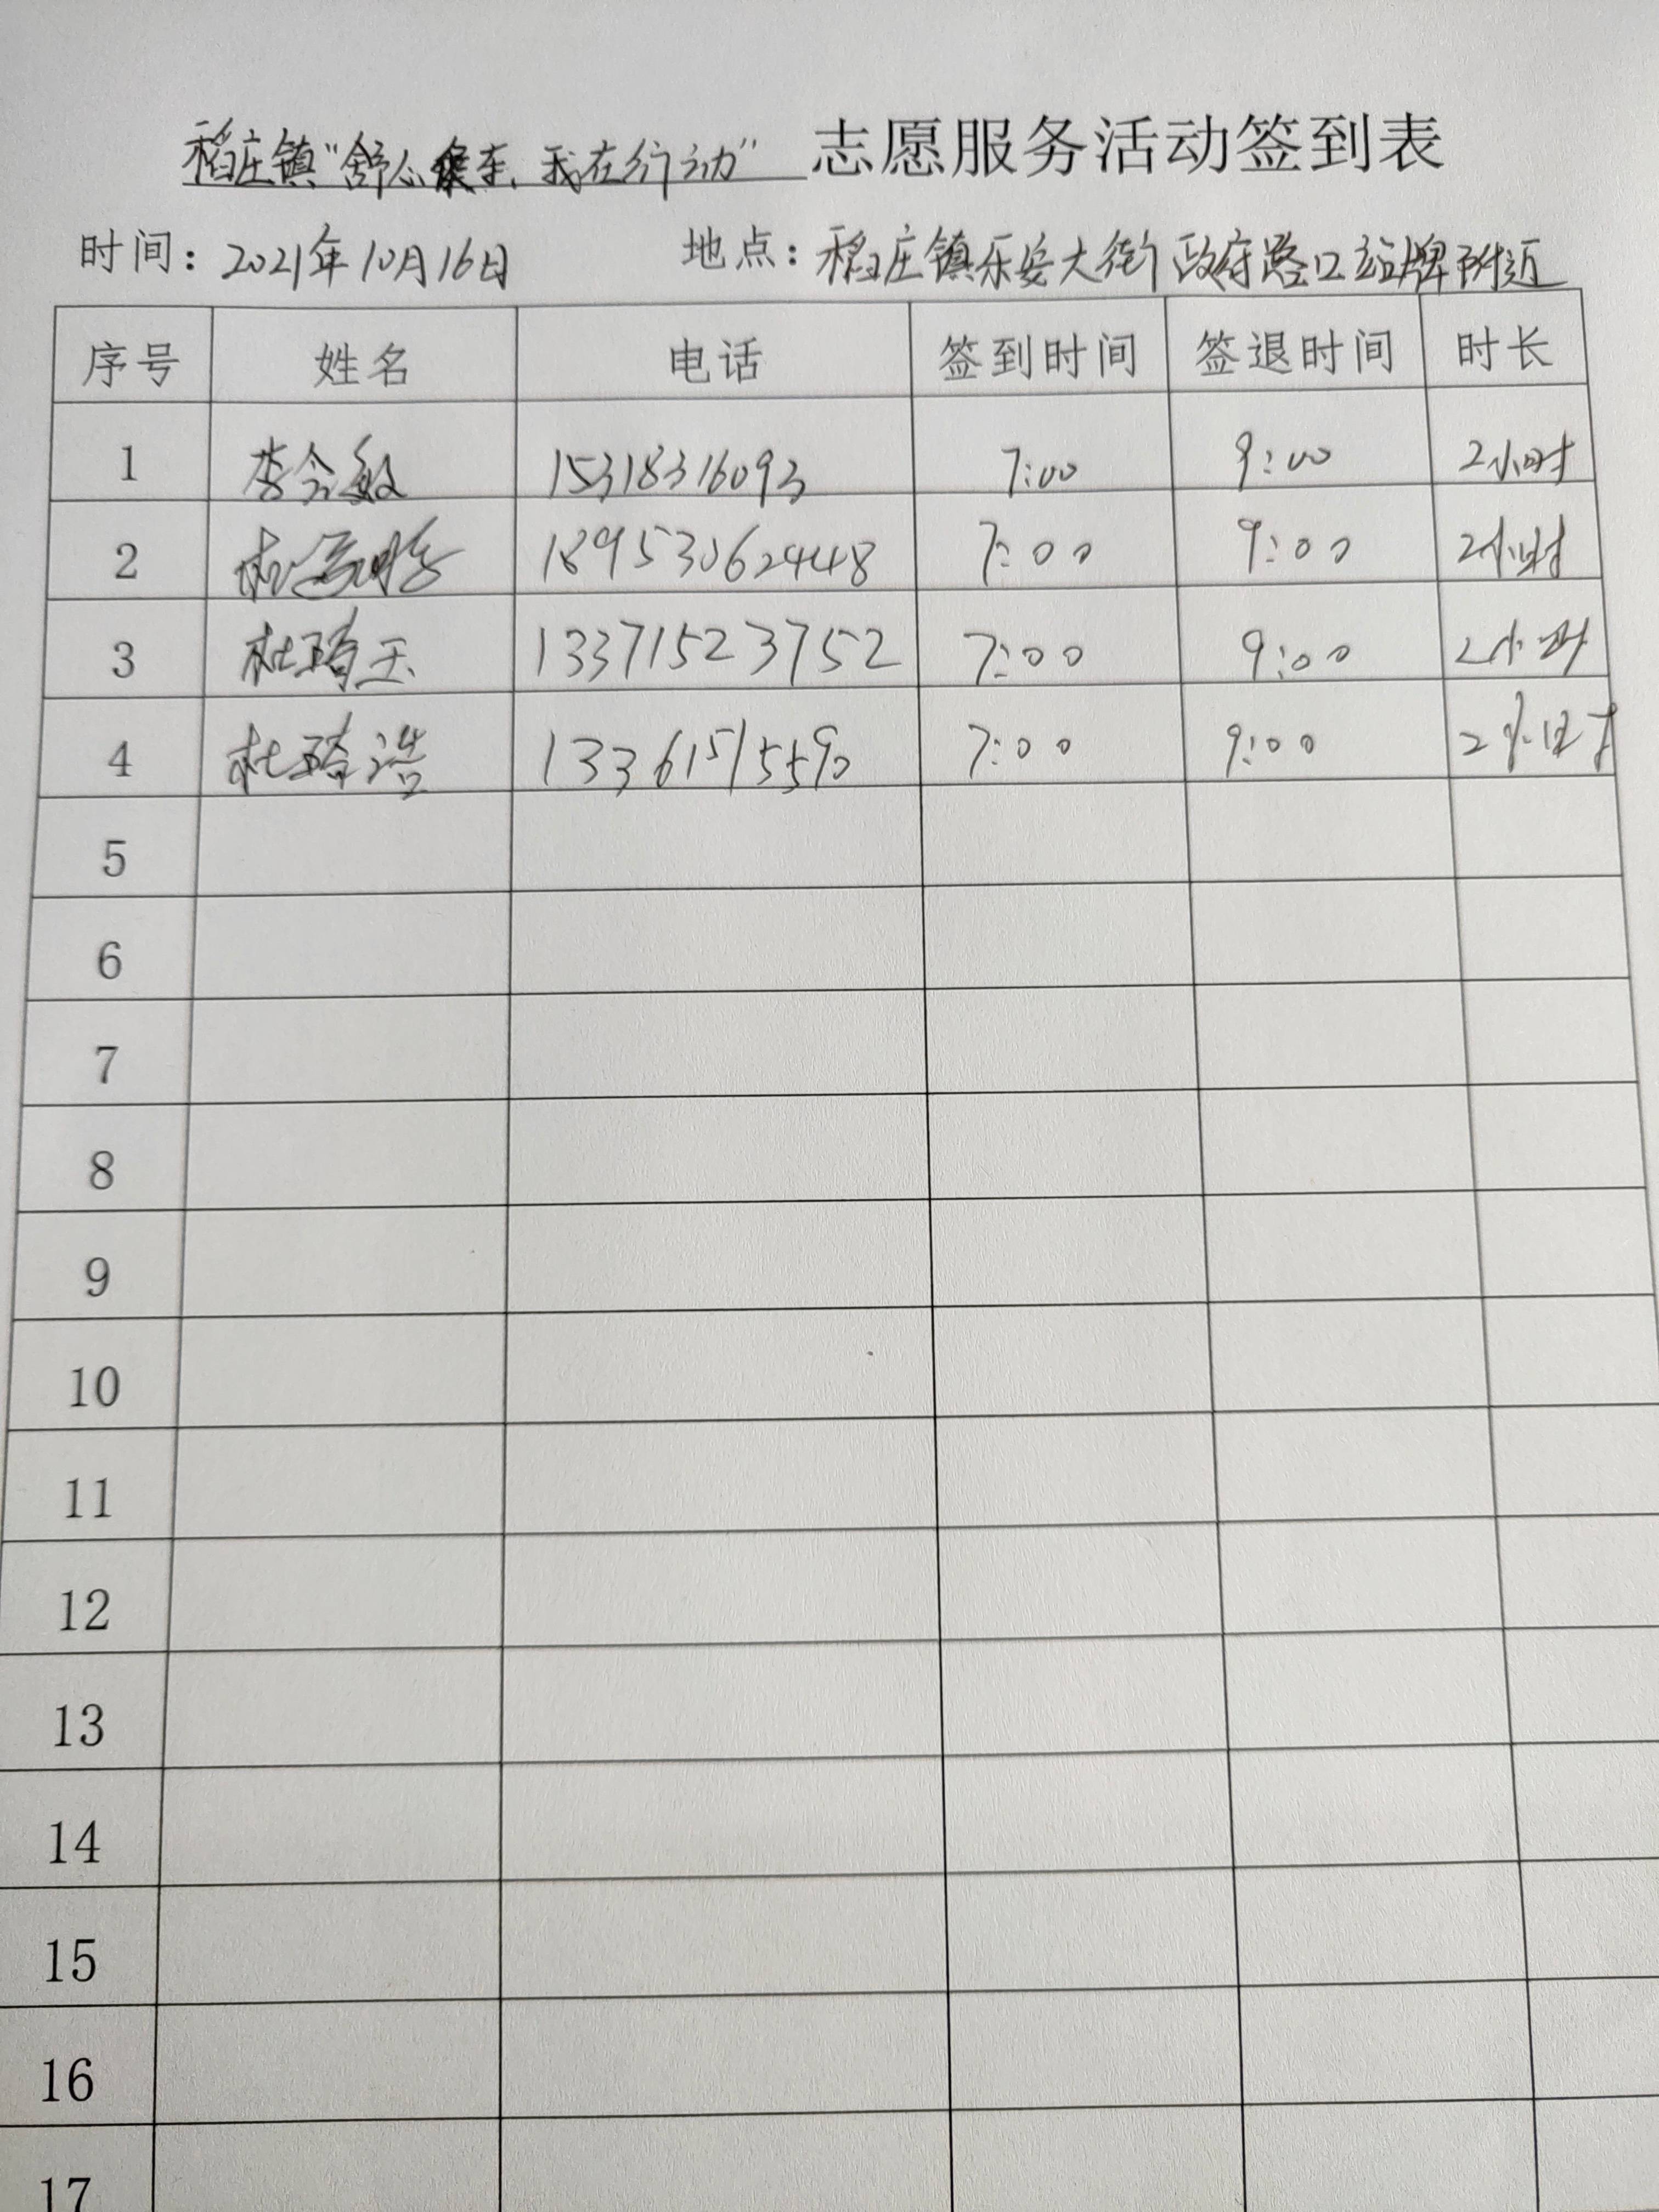 稻庄镇"舒心候车、我在行动" 志愿服务活动签到表
时间：2021年10月16日 地点：稻庄镇乐安大街政府路口站牌附近
序号 姓名 电话 签到时间 签退时间 时长
1 李会敏 15318316093 7:00 9:00 2小时
2 18953062448 7:00 9:00 2小时
3 杜琦玉 13371523752 7:00 9:00 2小时
4 杜琦浩 13361515590 7:00 9:00 2小时
5
6
7
8
9
10
11
12
13
14
15
16
17